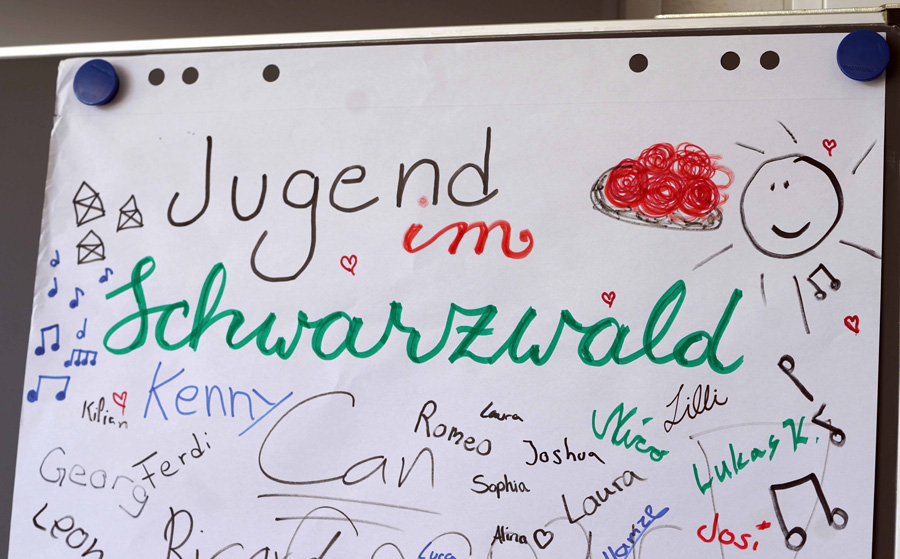 Jugend
im
Schwarzwald
Kenny
Kilian
Can
Romeo
Laura
Nico
Lilli
Georg
Ferdi
Joshua
Lukas K.
Sophia
Laura
Leon
Alina
Josi
Luca